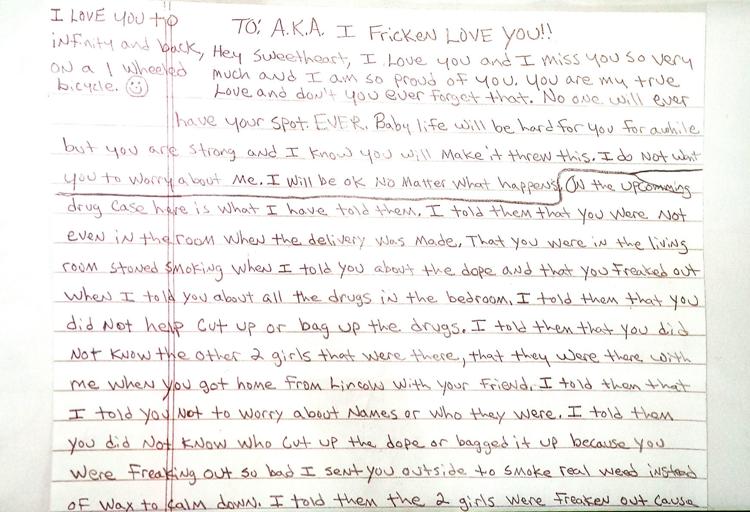 I LOVE YOU to
infinity and back,
ON a 1 wheeled
bicycle.
TO: A.K.A. I Fricken LOVE YOU!!
Hey Sweetheart, I Love you and I miss you so very
much and I am so proud of you. You are my true
Love and don't you ever forget that. No one will ever
have your spot. EVER. Baby life will be hard for you for awhile
but you are strong and I know you will make it threw this. I do Not want
you to worry about me. I will be ok No Matter what happens. ON the upcomming
drug case here is what I have told them. I told them that you were Not
even in the room when the delivery was made. That you were in the living
room stoned smoking when I told you about the dope and that you freaked out
when I told you about all the drugs in the bedroom. I told them that you
did Not help cut up or bag up the drugs. I told them that you did
Not know the other 2 girls that were there, that they were there with
me when you got home from Lincoln with your friend. I told them that
I told you Not to worry about Names or who they were. I told them
you did Not know who cut up the dope or bagged it up because you
were freaking out so bad I sent you outside to smoke real weed instead
of wax to calm down. I told them the 2 girls were freaken out cause